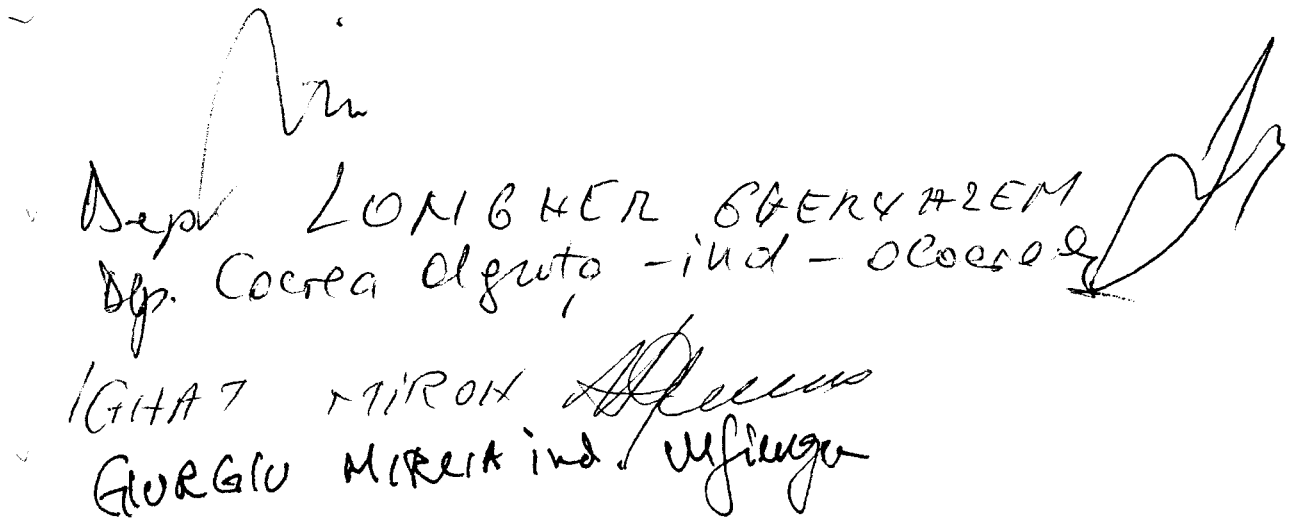 Dep LONGHER GHERVAZEM
Dep. Cocrea Olguța - ind -
IGHAT MIRON
GIURGIU MIRCIA ind. MGiurgiu